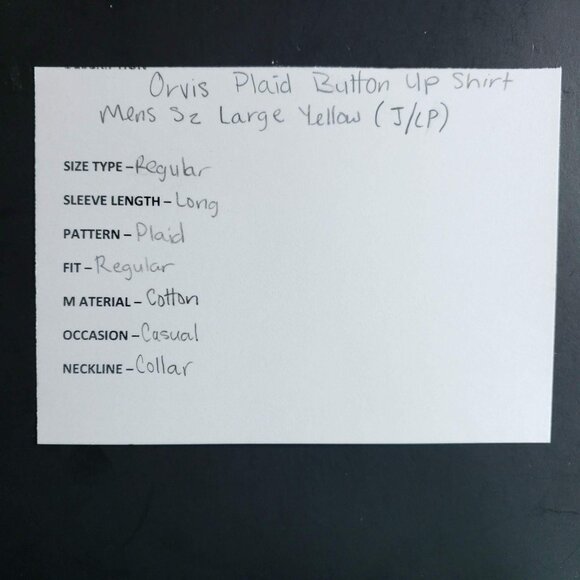 DESCRIPTION
Orvis Plaid Button Up Shirt
Mens Sz Large Yellow (J/LP)
SIZE TYPE – Regular
SLEEVE LENGTH – Long
PATTERN – Plaid
FIT – Regular
M ATERIAL – Cotton
OCCASION – Casual
NECKLINE – Collar